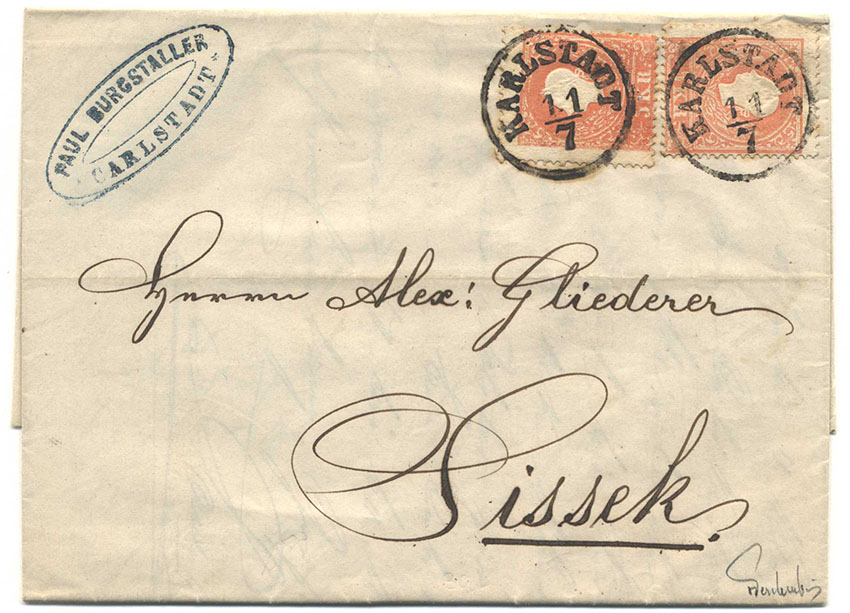 PAUL BURGSTALLER
CARLSTADT
KARLSTADT
11
7
KR
KARLSTADT
11
7
Herrn Alex: Gliederer
Sissek.